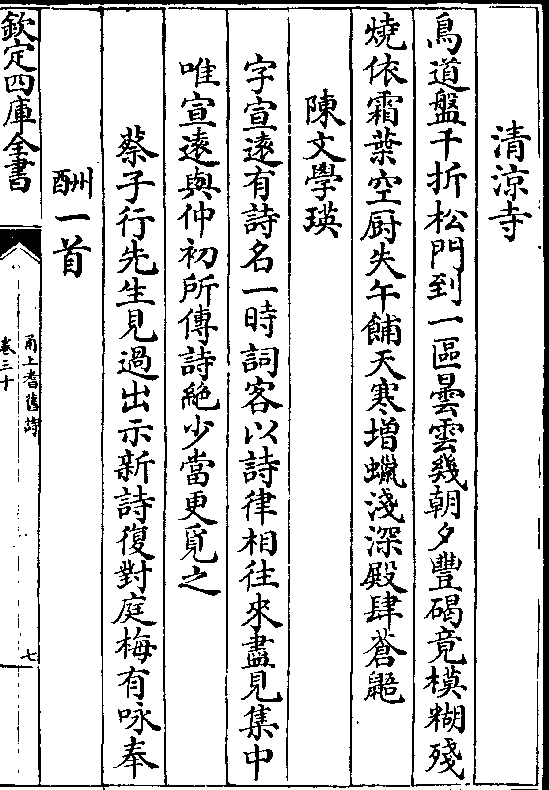 清涼寺
鳥道盤千折松門到一區曇雲幾朝夕豐碣竟模糊殘
燒依霜葉空厨失午餔天寒増蠟淺深殿肆蒼鼯
陳文學瑛
字宣遠有詩名一時詞客以詩律相往來盡見集中
唯宣遠與仲初所傳詩絶少當更覓之
蔡子行先生見過出示新詩復對庭梅有咏奉
酬一首
欽定四庫全書
甬上耆舊詩
卷三十
七